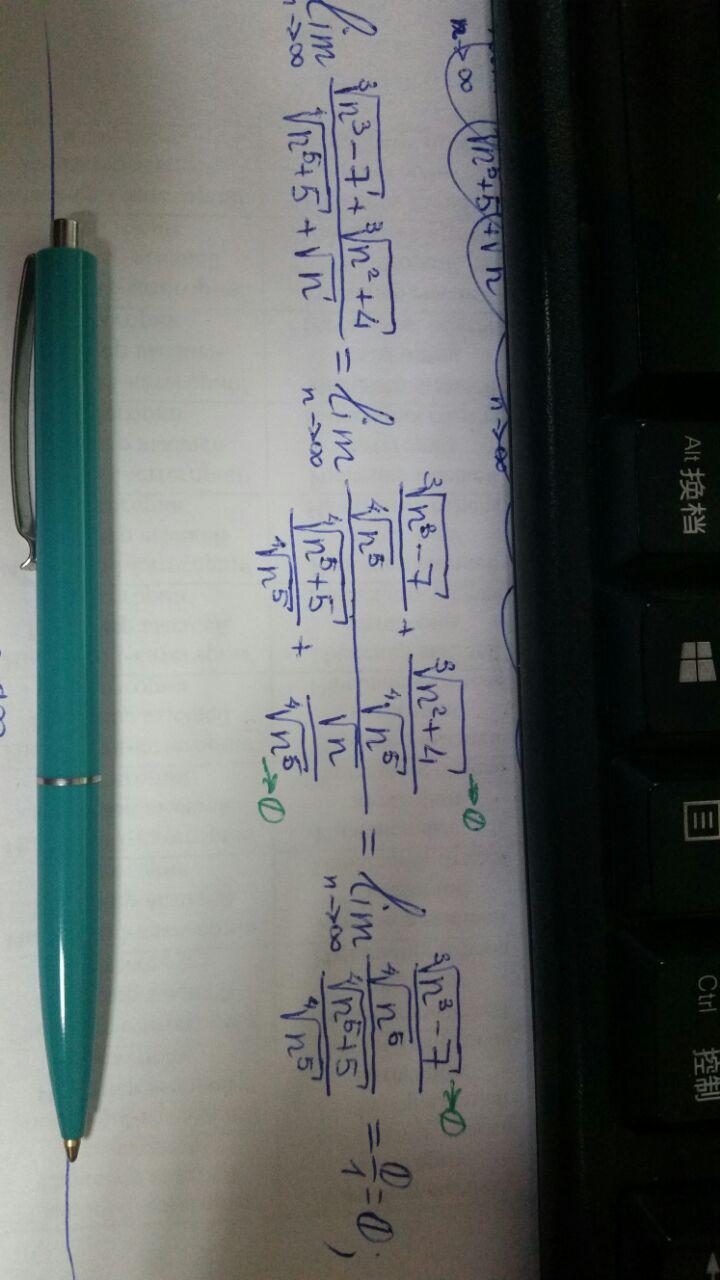 n→∞ (∜n⁵+5)+√n n→∞
lim n→∞ (∛(n³-7) + ∛(n²+4)) / (∜(n⁵+5) + √n) = lim n→∞ (∛(n³-7)/∜n⁵ + ∛(n²+4)/∜n⁵ →0) / (∜(n⁵+5)/∜n⁵ + √n/∜n⁵ →0) = lim n→∞ (∛(n³-7)/∜n⁵ →0) / (∜(n⁵+5)/∜n⁵) = 0/1 = 0;
Alt 换档
Ctrl 控制